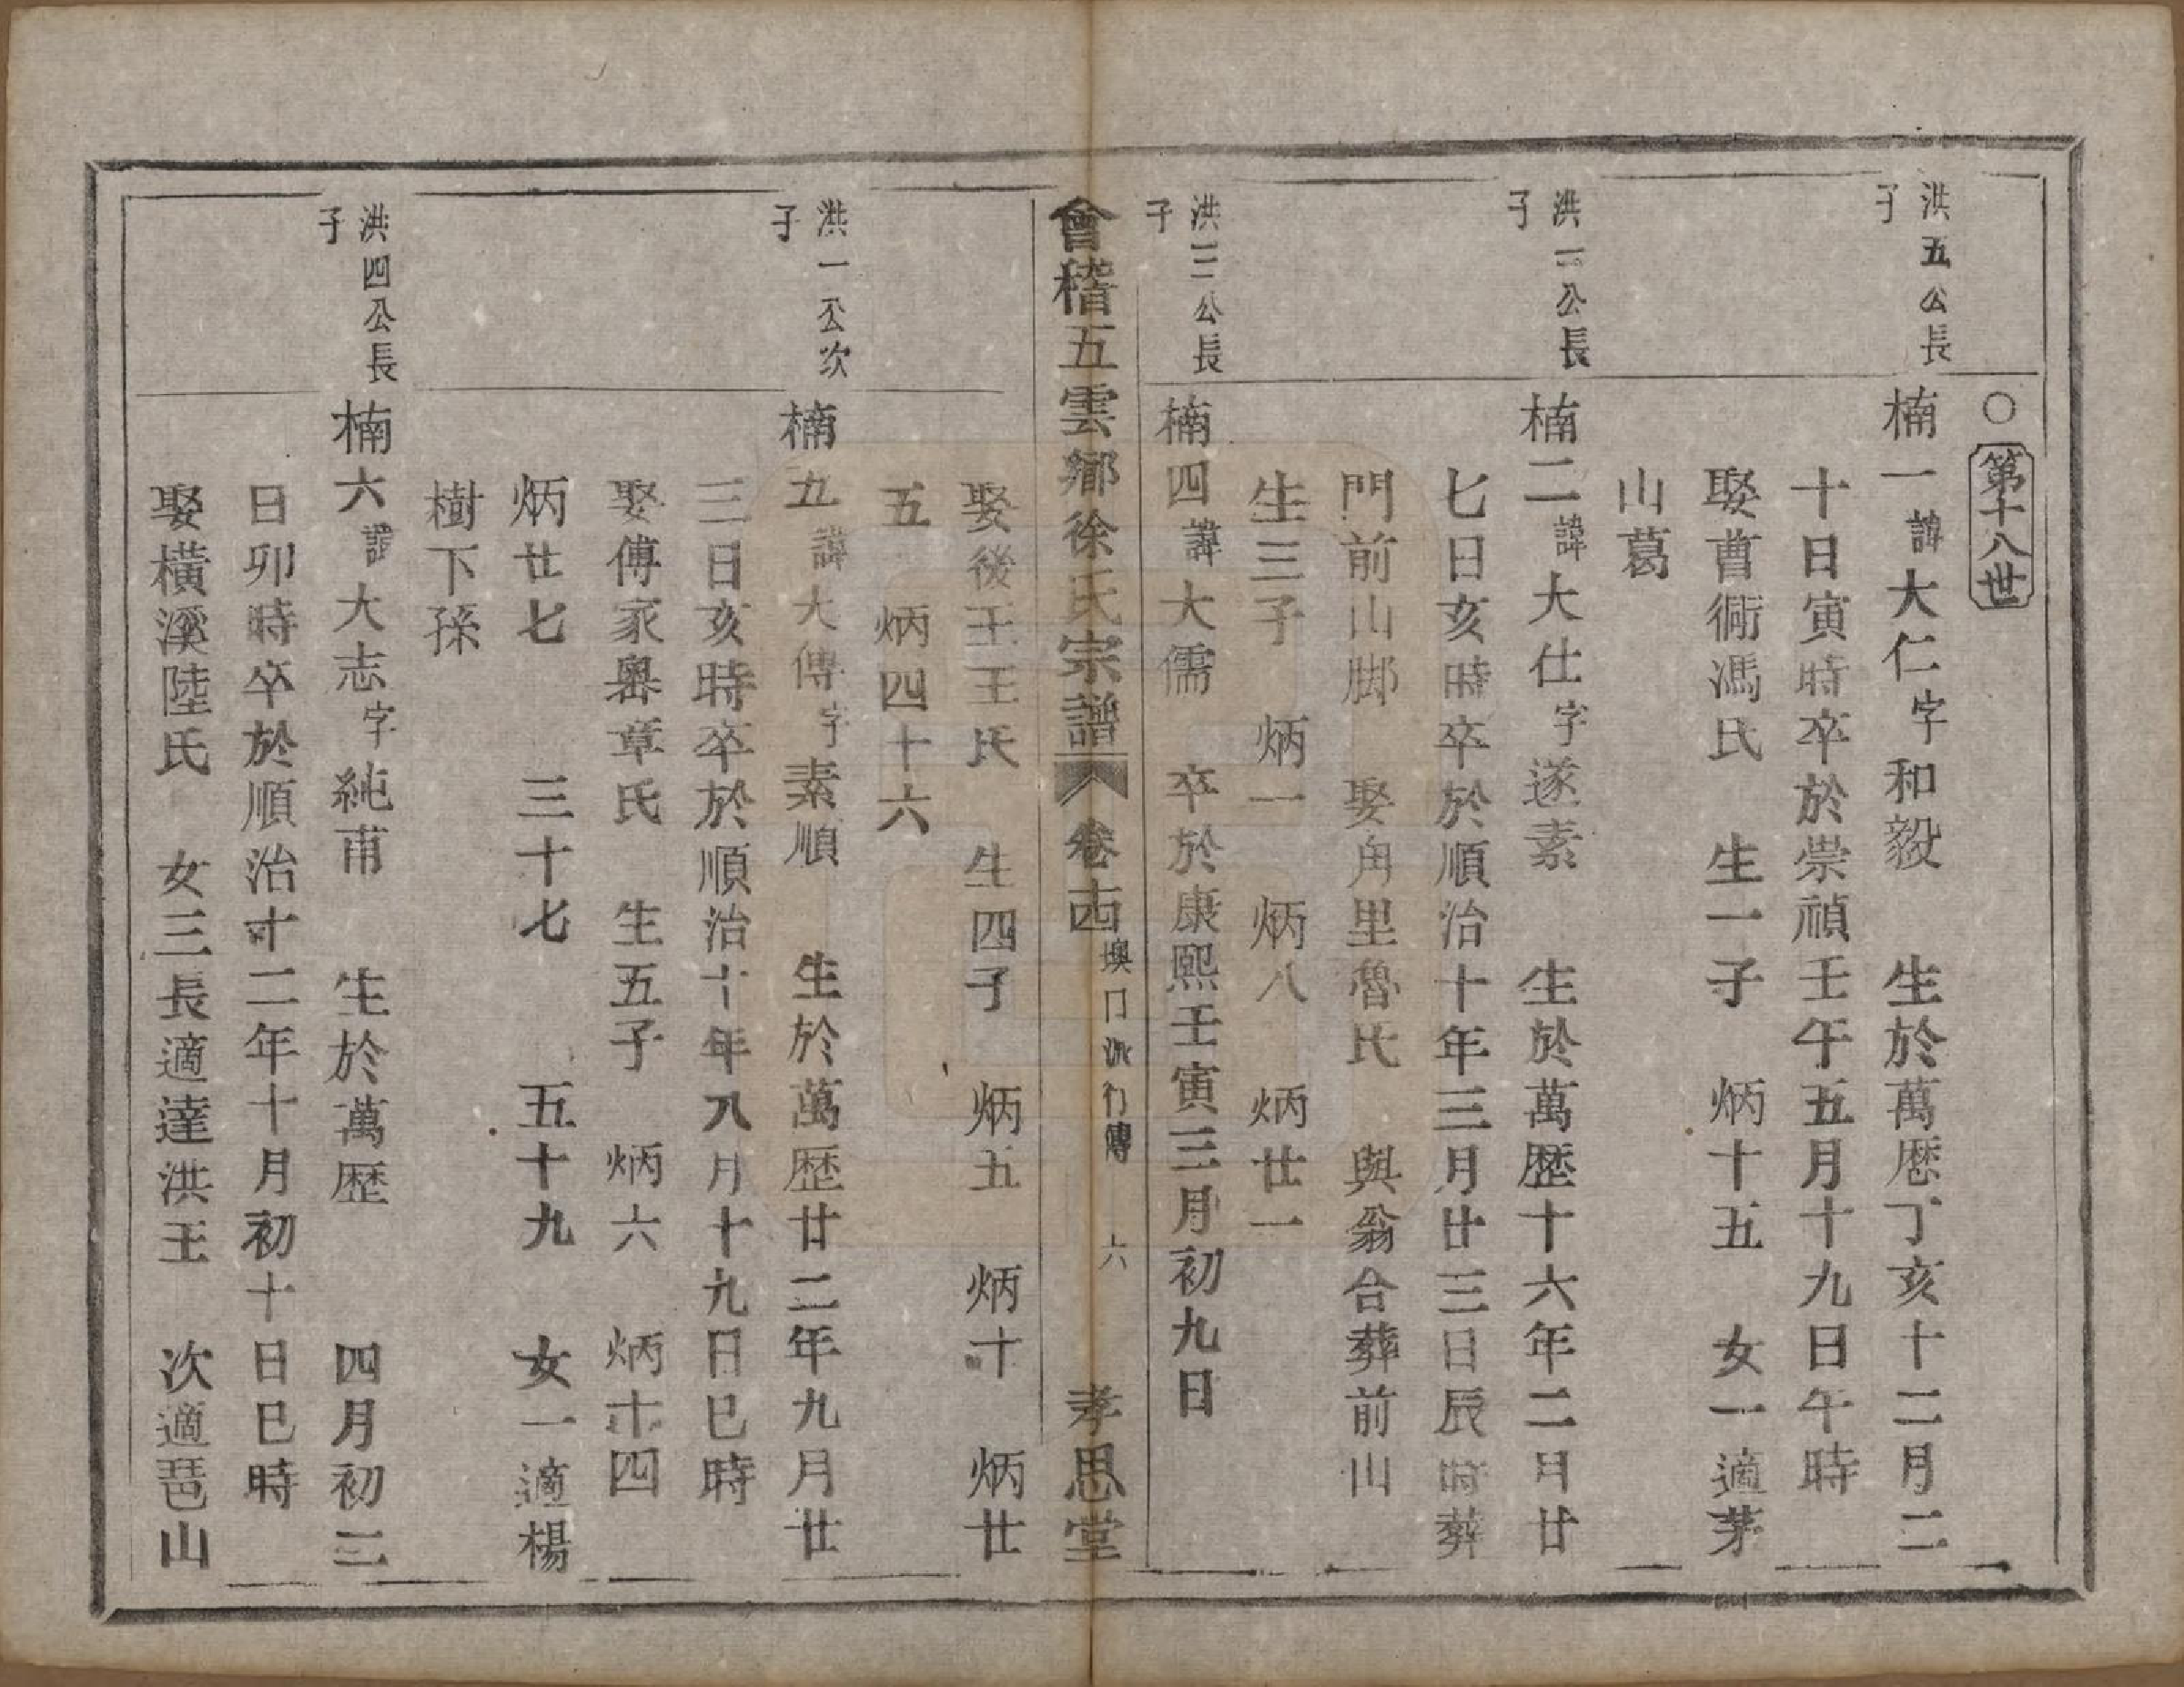 ○第十八世
洪五公長子
楠一諱大仁字和毅　生於萬歷丁亥十二月二
十日寅時卒於崇禎壬午五月十九日午時
娶曹衕馮氏　生一子　炳十五　女一適茅
山葛
洪二公長子
楠二諱大仕字遂素　生於萬歷十六年二月廿
七日亥時卒於順治十年三月廿三日辰時葬
門前山脚　娶角里魯氏　與翁合葬前山
生三子　炳一　炳八　炳廿一
洪三公長子
楠四諱大儒　卒於康熙壬寅三月初九日
會稽五雲鄉徐氏宗譜　卷十四　墺口派行傳　六　孝思堂
娶後王王氏　生四子　炳五　炳十　炳廿
五　炳四十六
洪一公次子
楠五諱大傅字素順　生於萬歷廿二年九月廿
三日亥時卒於順治十年八月十九日巳時
娶傅家嶴章氏　生五子　炳六　炳十四
炳廿七　三十七　五十九　女一適楊
樹下孫
洪四公長子
楠六諱大志字純甫　生於萬歷　四月初三
日卯時卒於順治十二年十月初十日巳時
娶橫溪陸氏　女三長適達洪王　次適琶山